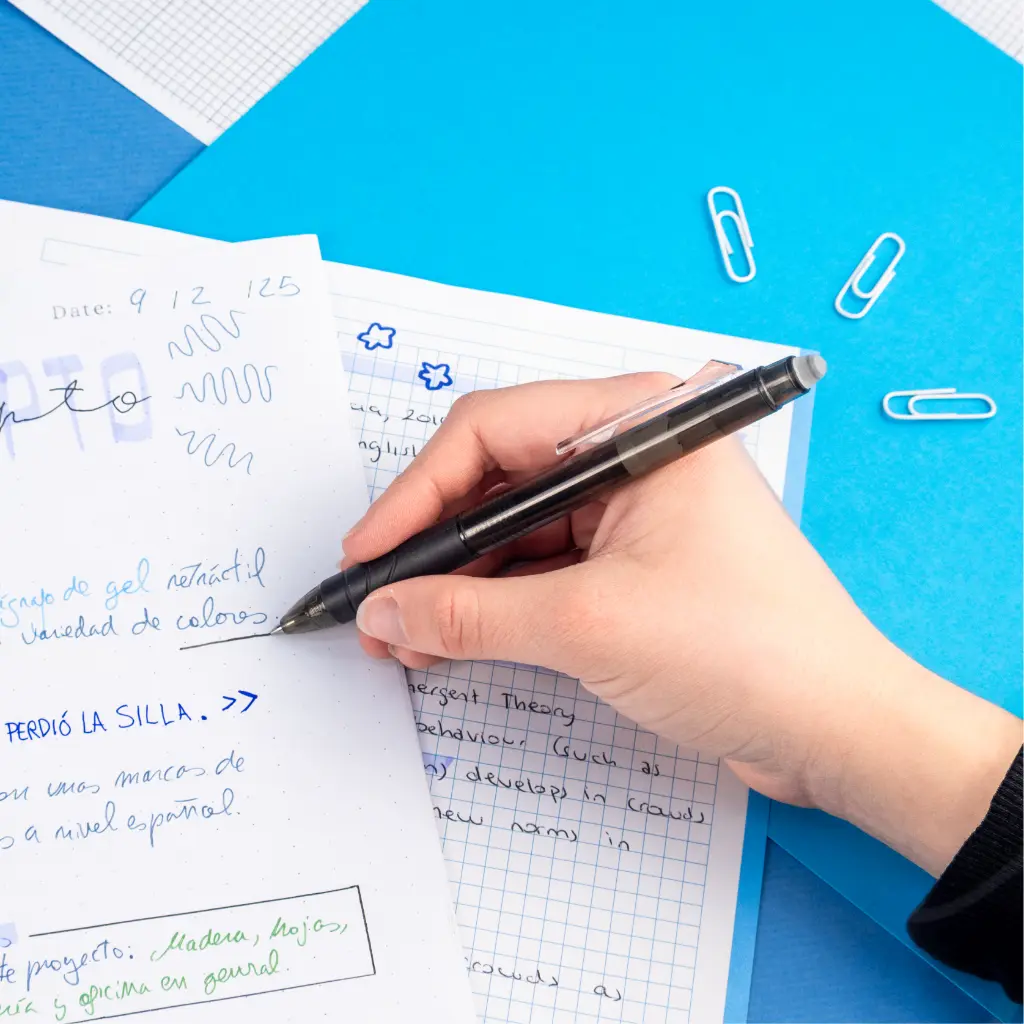 Date: 9 12 125
pto
de gel retráctil
variedad de colores.
PERDIÓ LA SILLA. >>
unas marcas de
a nivel español.
proyecto: Madera, hojas,
y oficina en genral.
, 201
nglish
mergent Theory
behaviour (such as
develops in crowds
new norms in
crowds as